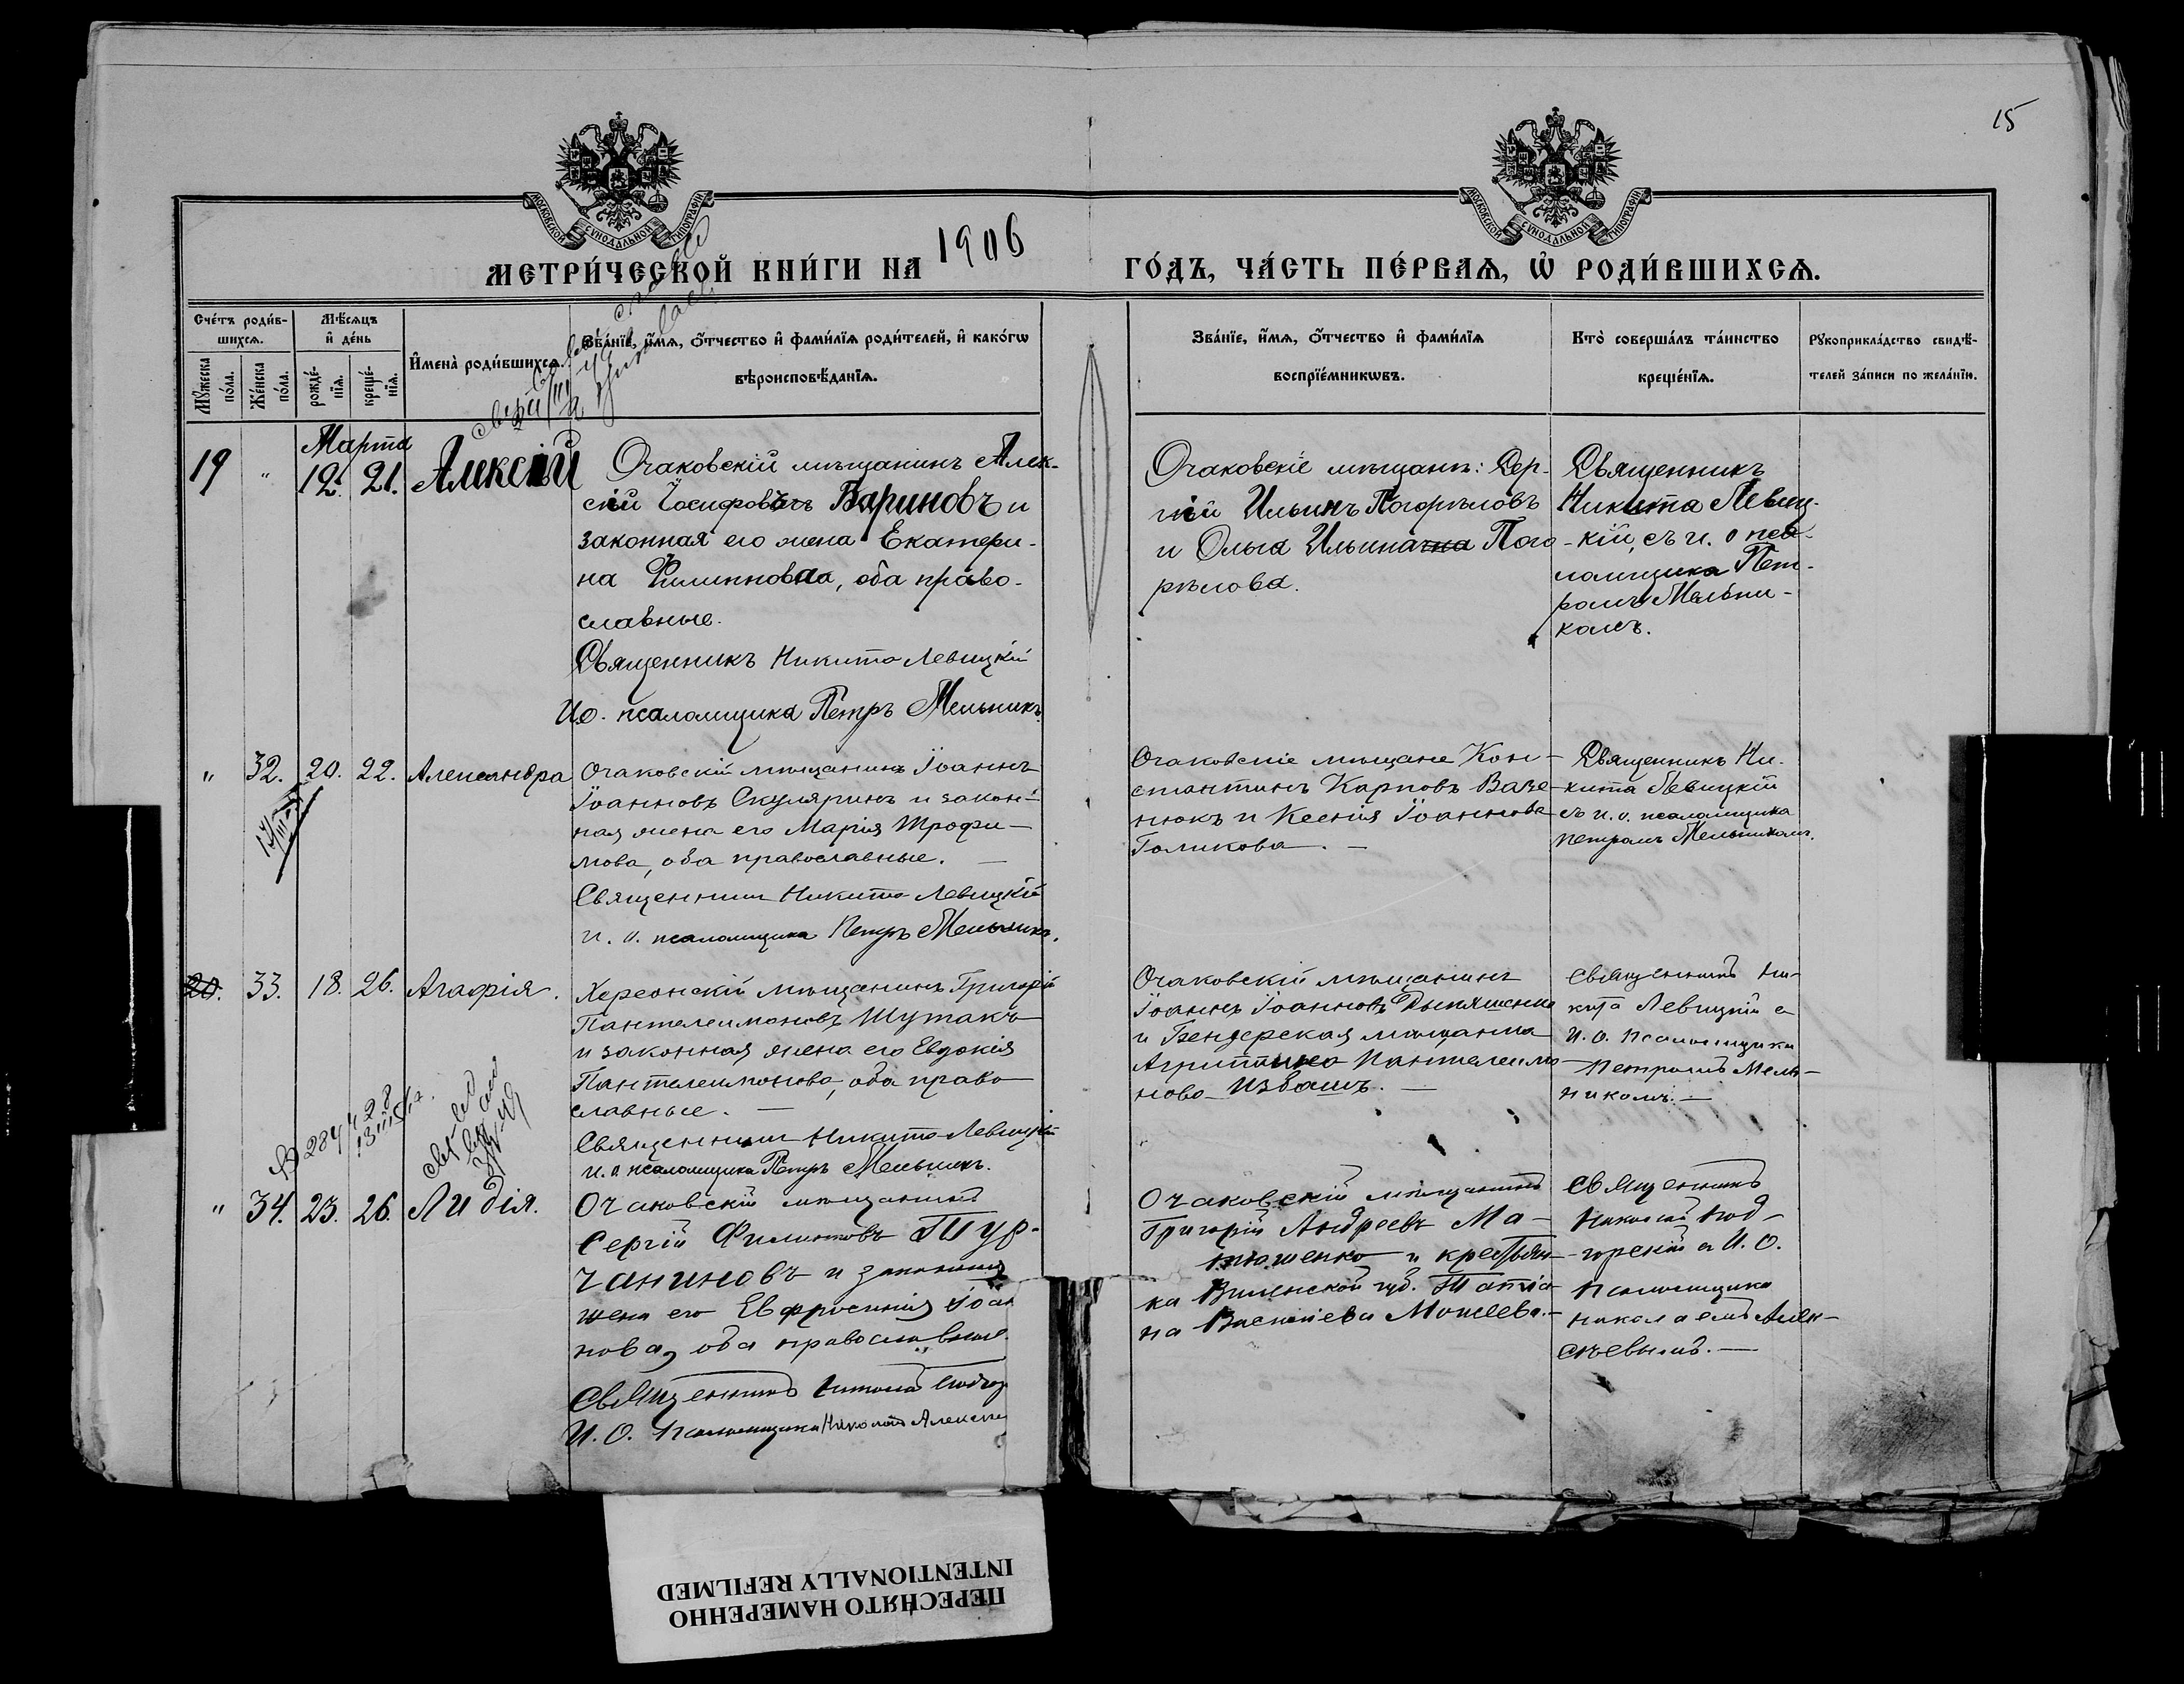 15
МОСКОВСКОЙ СѴНОДАЛЬНОЙ ТИПОГРАФІИ.
МОСКОВСКОЙ СѴНОДАЛЬНОЙ ТИПОГРАФІИ.
МЕТРИ́ЧЕСКОЙ КНИ́ГИ НА 1906 ГО́ДЪ, ЧА́СТЬ ПЕ́РВАѦ, Ѡ҆ РОДИ́ВШИХСѦ.
Сче́тъ роди́в-
шихсѧ.
Мѣ́сѧцъ
и҆ де́нь
Мꙋ́жеска
по́ла.
Же́нска
по́ла.
рожде́-
нїѧ.
креще́-
нїѧ.
И҆мена̀ роди́вшихсѧ.
Зва́нїе, и҆́мѧ, ѻ҆́тчество и҆ фами́лїѧ роди́телей, и҆ како́гѡ
вѣроисповѣ́данїѧ.
Зва́нїе, и҆́мѧ, ѻ҆́тчество и҆ фами́лїѧ
воспрїе́мникѡвъ.
Кто̀ соверша́лъ та́инство
креще́нїѧ.
Рꙋкоприкла́дство свидѣ́-
телей за́писи по жела́нїю.
Марта
19 " 12. 21. Алексій
Очаковскій мѣщанинъ Алек-
сій Іосифовъ Бариновъ и
законная его жена Екатери-
на Филиппова, оба право-
славные.
Священникъ Никита Левицкій
И.о. псаломщика Петръ Мельникъ.
Очаковскіе мѣщане: Сер-
гій Ильинъ Погорѣловъ
и Ольга Ильина Пого-
рѣлова.
Священникъ
Никита Левиц-
кій, съ и. о пса-
ломщика Пет-
ромъ Мельни-
комъ.
" 32. 20. 22. Александра
Очаковскій мѣщанинъ Іоаннъ
Іоанновъ Скуляринъ и закон-
ная жена его Марія Трофи-
мова, оба православные.
Священникъ Никита Левицкій
и. о. псаломщика Петръ Мельникъ.
Очаковскіе мѣщане Кон-
стантинъ Карповъ Ваке-
нюкъ и Ксенія Іоаннова
Голикова.
Священникъ Ни-
кита Левицкій
съ и. о. псаломщика
Петромъ Мельникомъ.
20. 33. 18. 26. Агафія.
Херсонскій мѣщанинъ Григорій
Пантелеимоновъ Шутакъ
и законная жена его Евдокія
Пантелеимонова, оба право-
славные.
Священникъ Никита Левицкій
и. о. псаломщика Петръ Мельникъ.
Очаковскій мѣщанинъ
Іоаннъ Іоанновъ
и Бендерская мѣщанка
Агриппина Пантелеимо-
нова Извашъ.
Священникъ Ни-
кита Левицкій съ
И. О. Псаломщика
Петромъ Мель-
никомъ.
" 34. 23. 26. Лидія.
Очаковскій мѣщанинъ
Сергій Филипповъ Тур-
чаниновъ и законная
жена его Евфросинія Іоан
нова, оба православные.
Священникъ Николай Подгор
И. О. Псаломщика Николай Алексѣе
Очаковскій мѣщанинъ
Григорій Андреевъ Ма-
тюшенко и крестьян-
ка Виленской губ. Татіа-
на Василіева Моисеева.
Священникъ
Николай Под-
горскій съ И. О.
Псаломщика
Николаемъ Алек-
сѣевымъ.
ПЕРЕСНЯТО НАМЕРЕННО
INTENTIONALLY REFILMED